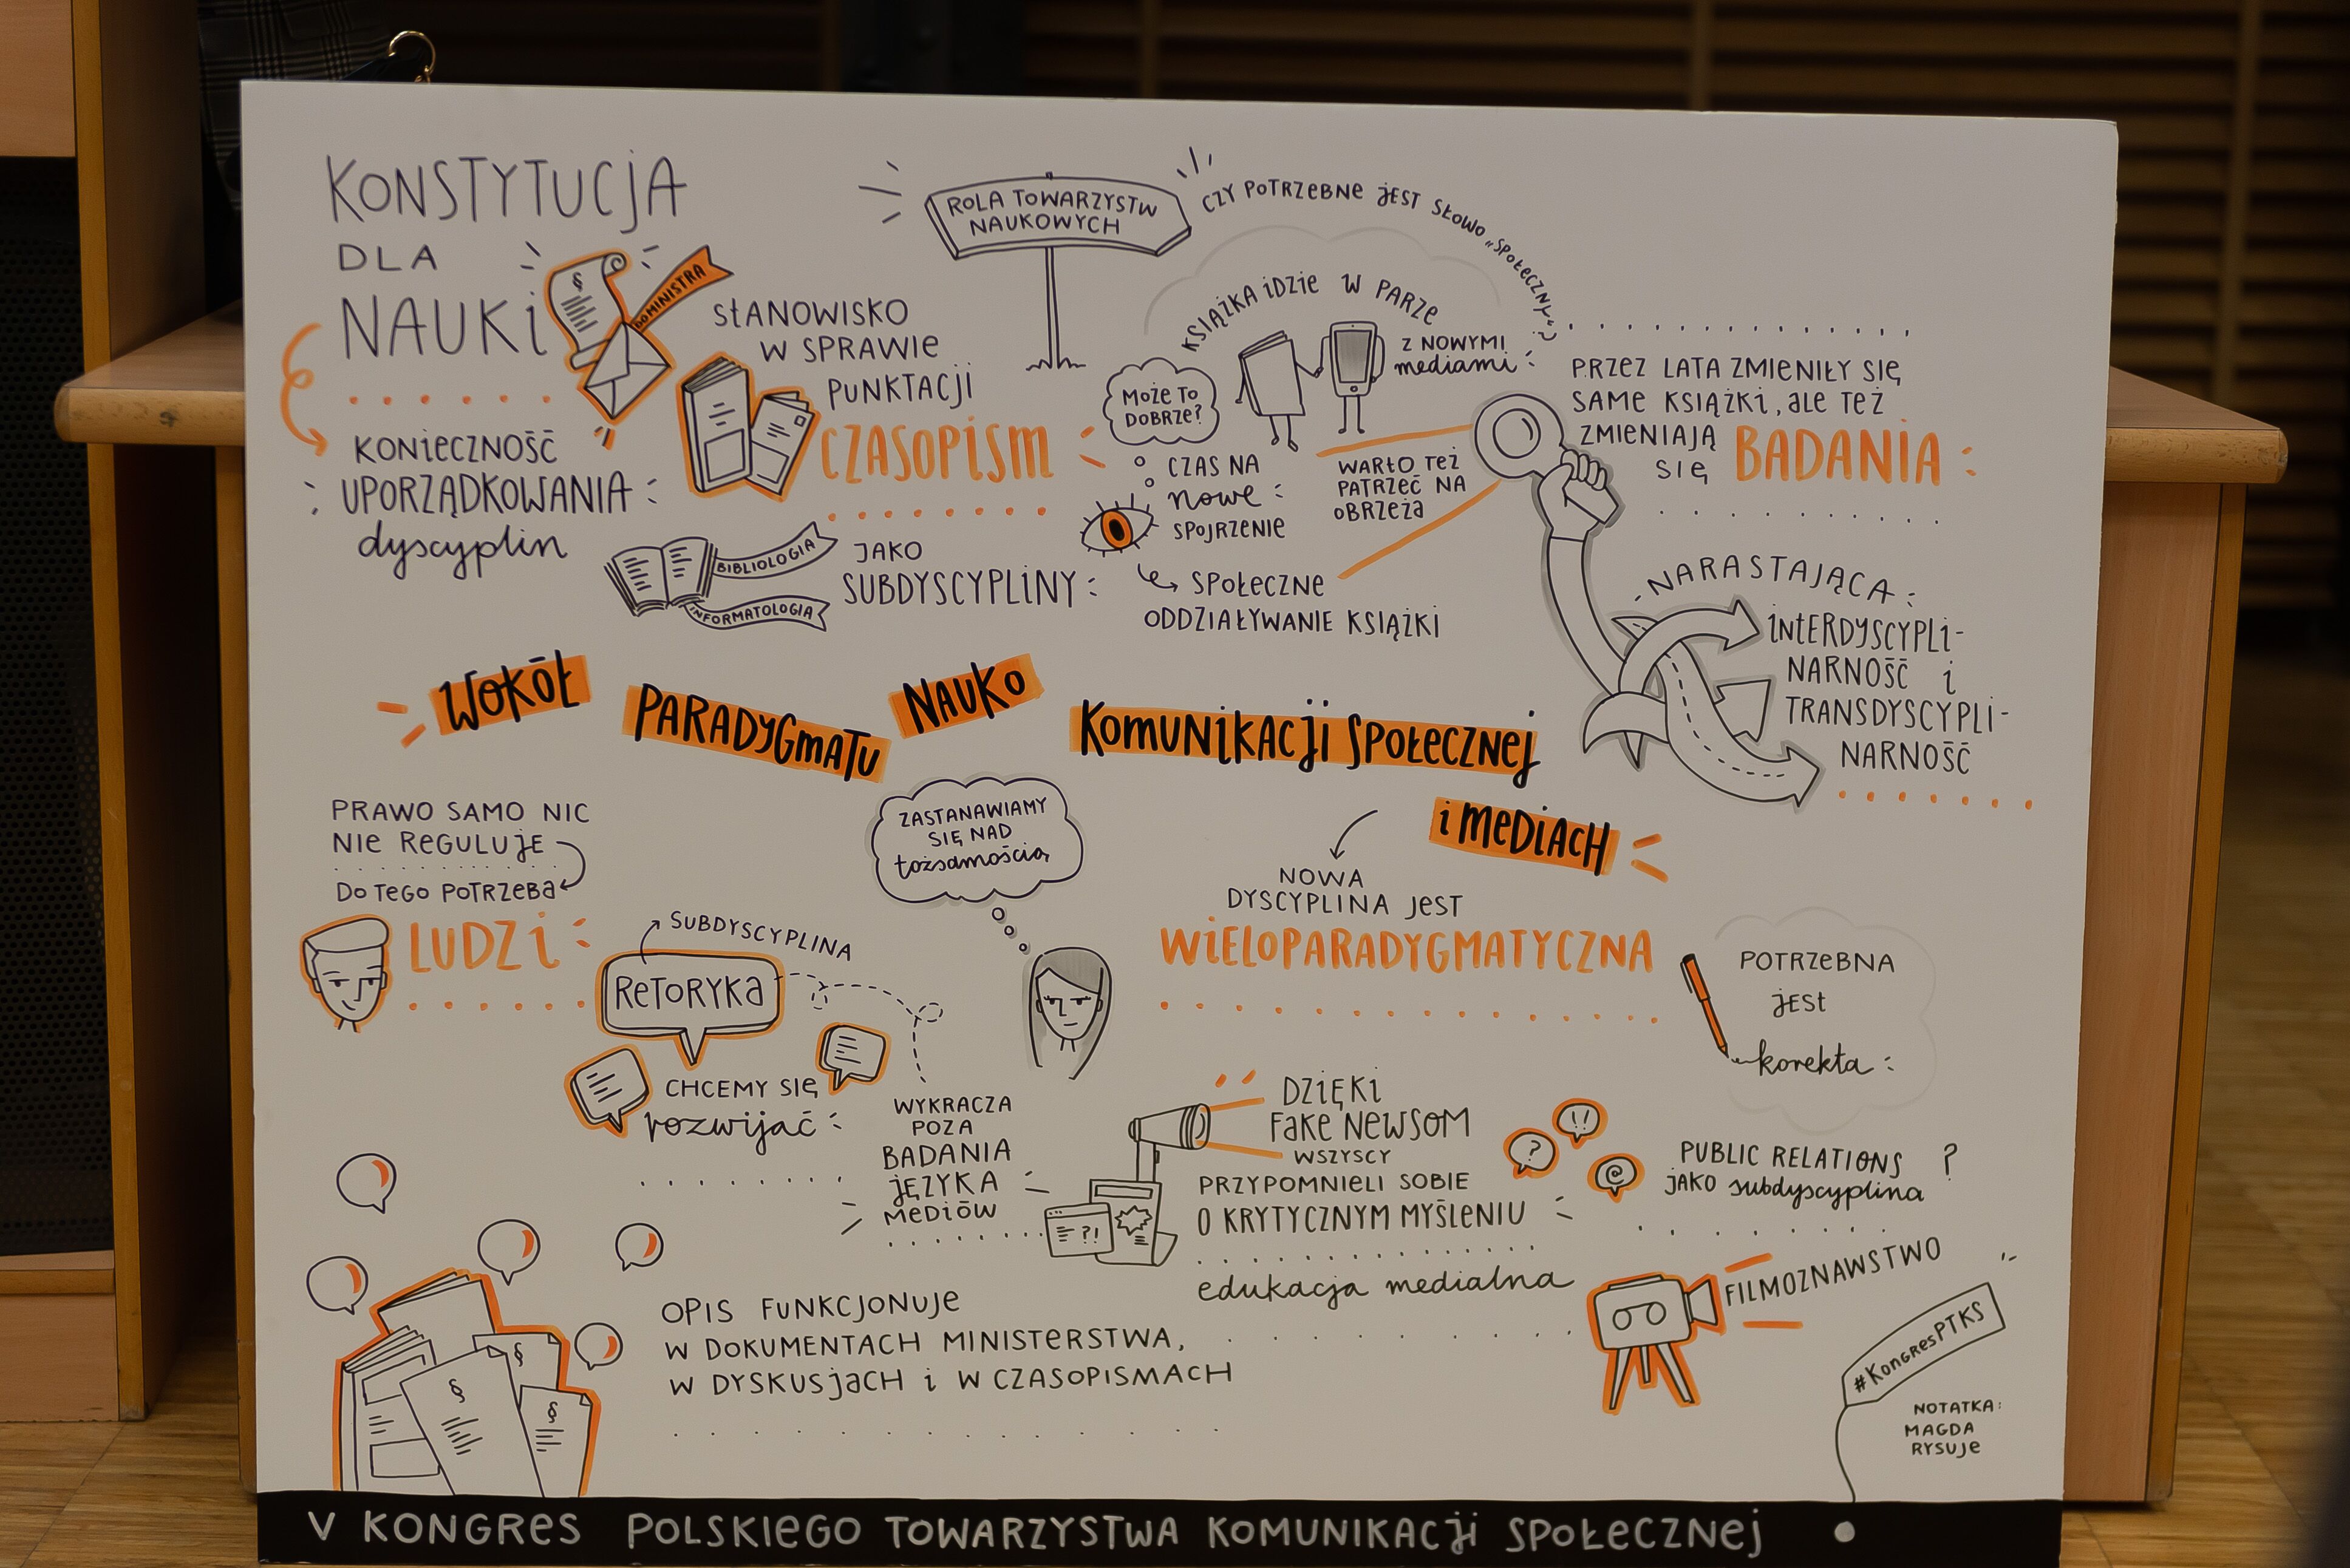 KONSTYTUCJA
DLA
NAUKI
DO MINISTRA
KONIECZNOŚĆ
UPORZĄDKOWANIA
dyscyplin
STANOWISKO
W SPRAWIE
PUNKTACJI
CZASOPISM
BIBLIOLOGIA
INFORMATOLOGIA
JAKO
SUBDYSCYPLINY
ROLA TOWARZYSTW
NAUKOWYCH
CZY POTRZEBNE JEST SŁOWO „SPOŁECZNY"?
KSIĄŻKA IDZIE W PARZE
Z NOWYMI
mediami
MOŻE TO
DOBRZE?
CZAS NA
nowe
SPOJRZENIE
SPOŁECZNE
ODDZIAŁYWANIE KSIĄŻKI
WARTO TEŻ
PATRZEĆ NA
OBRZEŻA
PRZEZ LATA ZMIENIŁY SIĘ
SAME KSIĄŻKI, ALE TEŻ
ZMIENIAJĄ
SIĘ BADANIA
NARASTAJĄCA
INTERDYSCYPLI-
NARNOŚĆ I
TRANSDYSCYPLI-
NARNOŚĆ
WOKÓŁ
PARADYGMATU
NAUK O
KOMUNIKACJI SPOŁECZNEJ
I MEDIACH
PRAWO SAMO NIC
NIE REGULUJE
DO TEGO POTRZEBA
LUDZI
SUBDYSCYPLINA
RETORYKA
CHCEMY SIĘ
rozwijać
WYKRACZA
POZA
BADANIA
JĘZYKA
MEDIÓW
ZASTANAWIAMY
SIĘ NAD
tożsamością
NOWA
DYSCYPLINA JEST
WIELOPARADYGMATYCZNA
POTRZEBNA
JEST
korekta
DZIĘKI
FAKE NEWSOM
WSZYSCY
PRZYPOMNIELI SOBIE
O KRYTYCZNYM MYŚLENIU
?!
?
!!
@
edukacja medialna
PUBLIC RELATIONS ?
JAKO subdyscyplina
FILMOZNAWSTWO
OPIS FUNKCJONUJE
W DOKUMENTACH MINISTERSTWA,
W DYSKUSJACH I W CZASOPISMACH
#KONGRESPTKS
NOTATKA:
MAGDA
RYSUJE
V KONGRES POLSKIEGO TOWARZYSTWA KOMUNIKACJI SPOŁECZNEJ